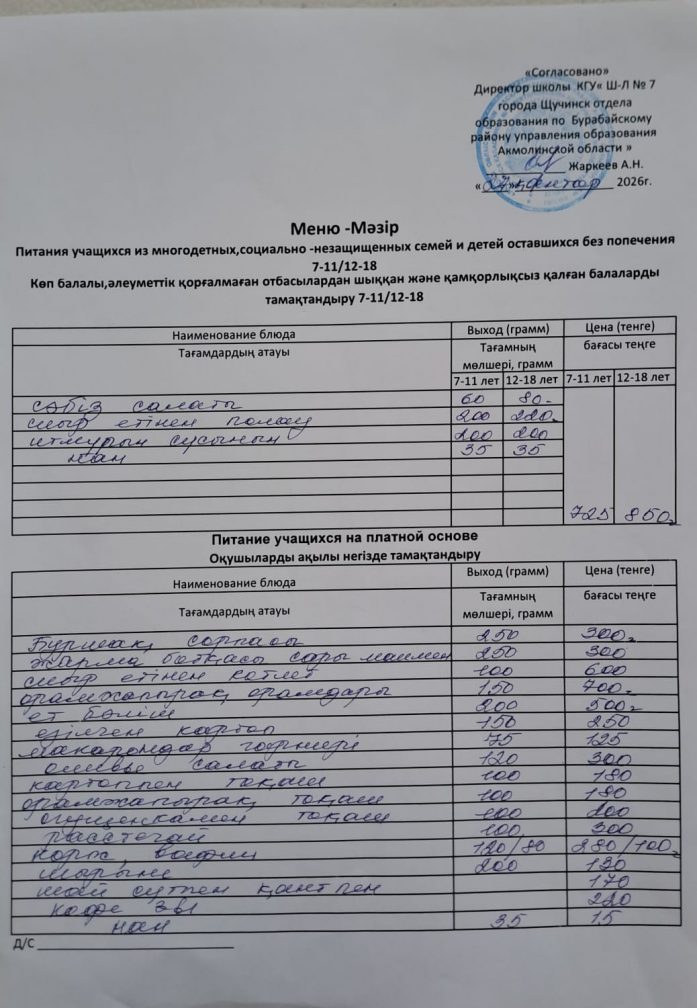 «Согласовано»
Директор школы КГУ« Ш-Л № 7
города Щучинск отдела
образования по Бурабайскому
району управления образования
Акмолинской области »
Жаркеев А.Н.
2026г.
Меню -Мәзір
Питания учащихся из многодетных,социально -незащищенных семей и детей оставшихся без попечения
7-11/12-18
Көп балалы,әлеуметтік қорғалмаған отбасылардан шыққан және қамқорлықсыз қалған балаларды
тамақтандыру 7-11/12-18
Наименование блюда Выход (грамм) Цена (тенге)
Тағамдардың атауы Тағамның мөлшері, грамм бағасы теңге
7-11 лет 12-18 лет 7-11 лет 12-18 лет
сәбіз салаты 60 80
сиыр етінен палау 200 220
итмұрын сусынын 200 200
нан 35 35
725 850
Питание учащихся на платной основе
Оқушыларды ақылы негізде тамақтандыру
Наименование блюда Выход (грамм) Цена (тенге)
Тағамдардың атауы Тағамның мөлшері, грамм бағасы теңге
Бұршақ сорпасы 250 300
Жарма ботқасы сары маймен 250 300
сиыр етінен котлет 100 600
орамжапырақ орамдары 150 700
ет бәліш 200 500
езілген картоп 150 250
макарондар гарнирі 75 125
оливье салаты 120 300
картоппен тоқаш 100 180
орамжапырақ тоқаш 100 180
сгущенкамен тоқаш 100 200
расстегай 100 300
корж, вафли 120/80 280/100
200 130
шай сүтпен қантпен 170
кофе 3в1 220
нан 35 15
Д/С